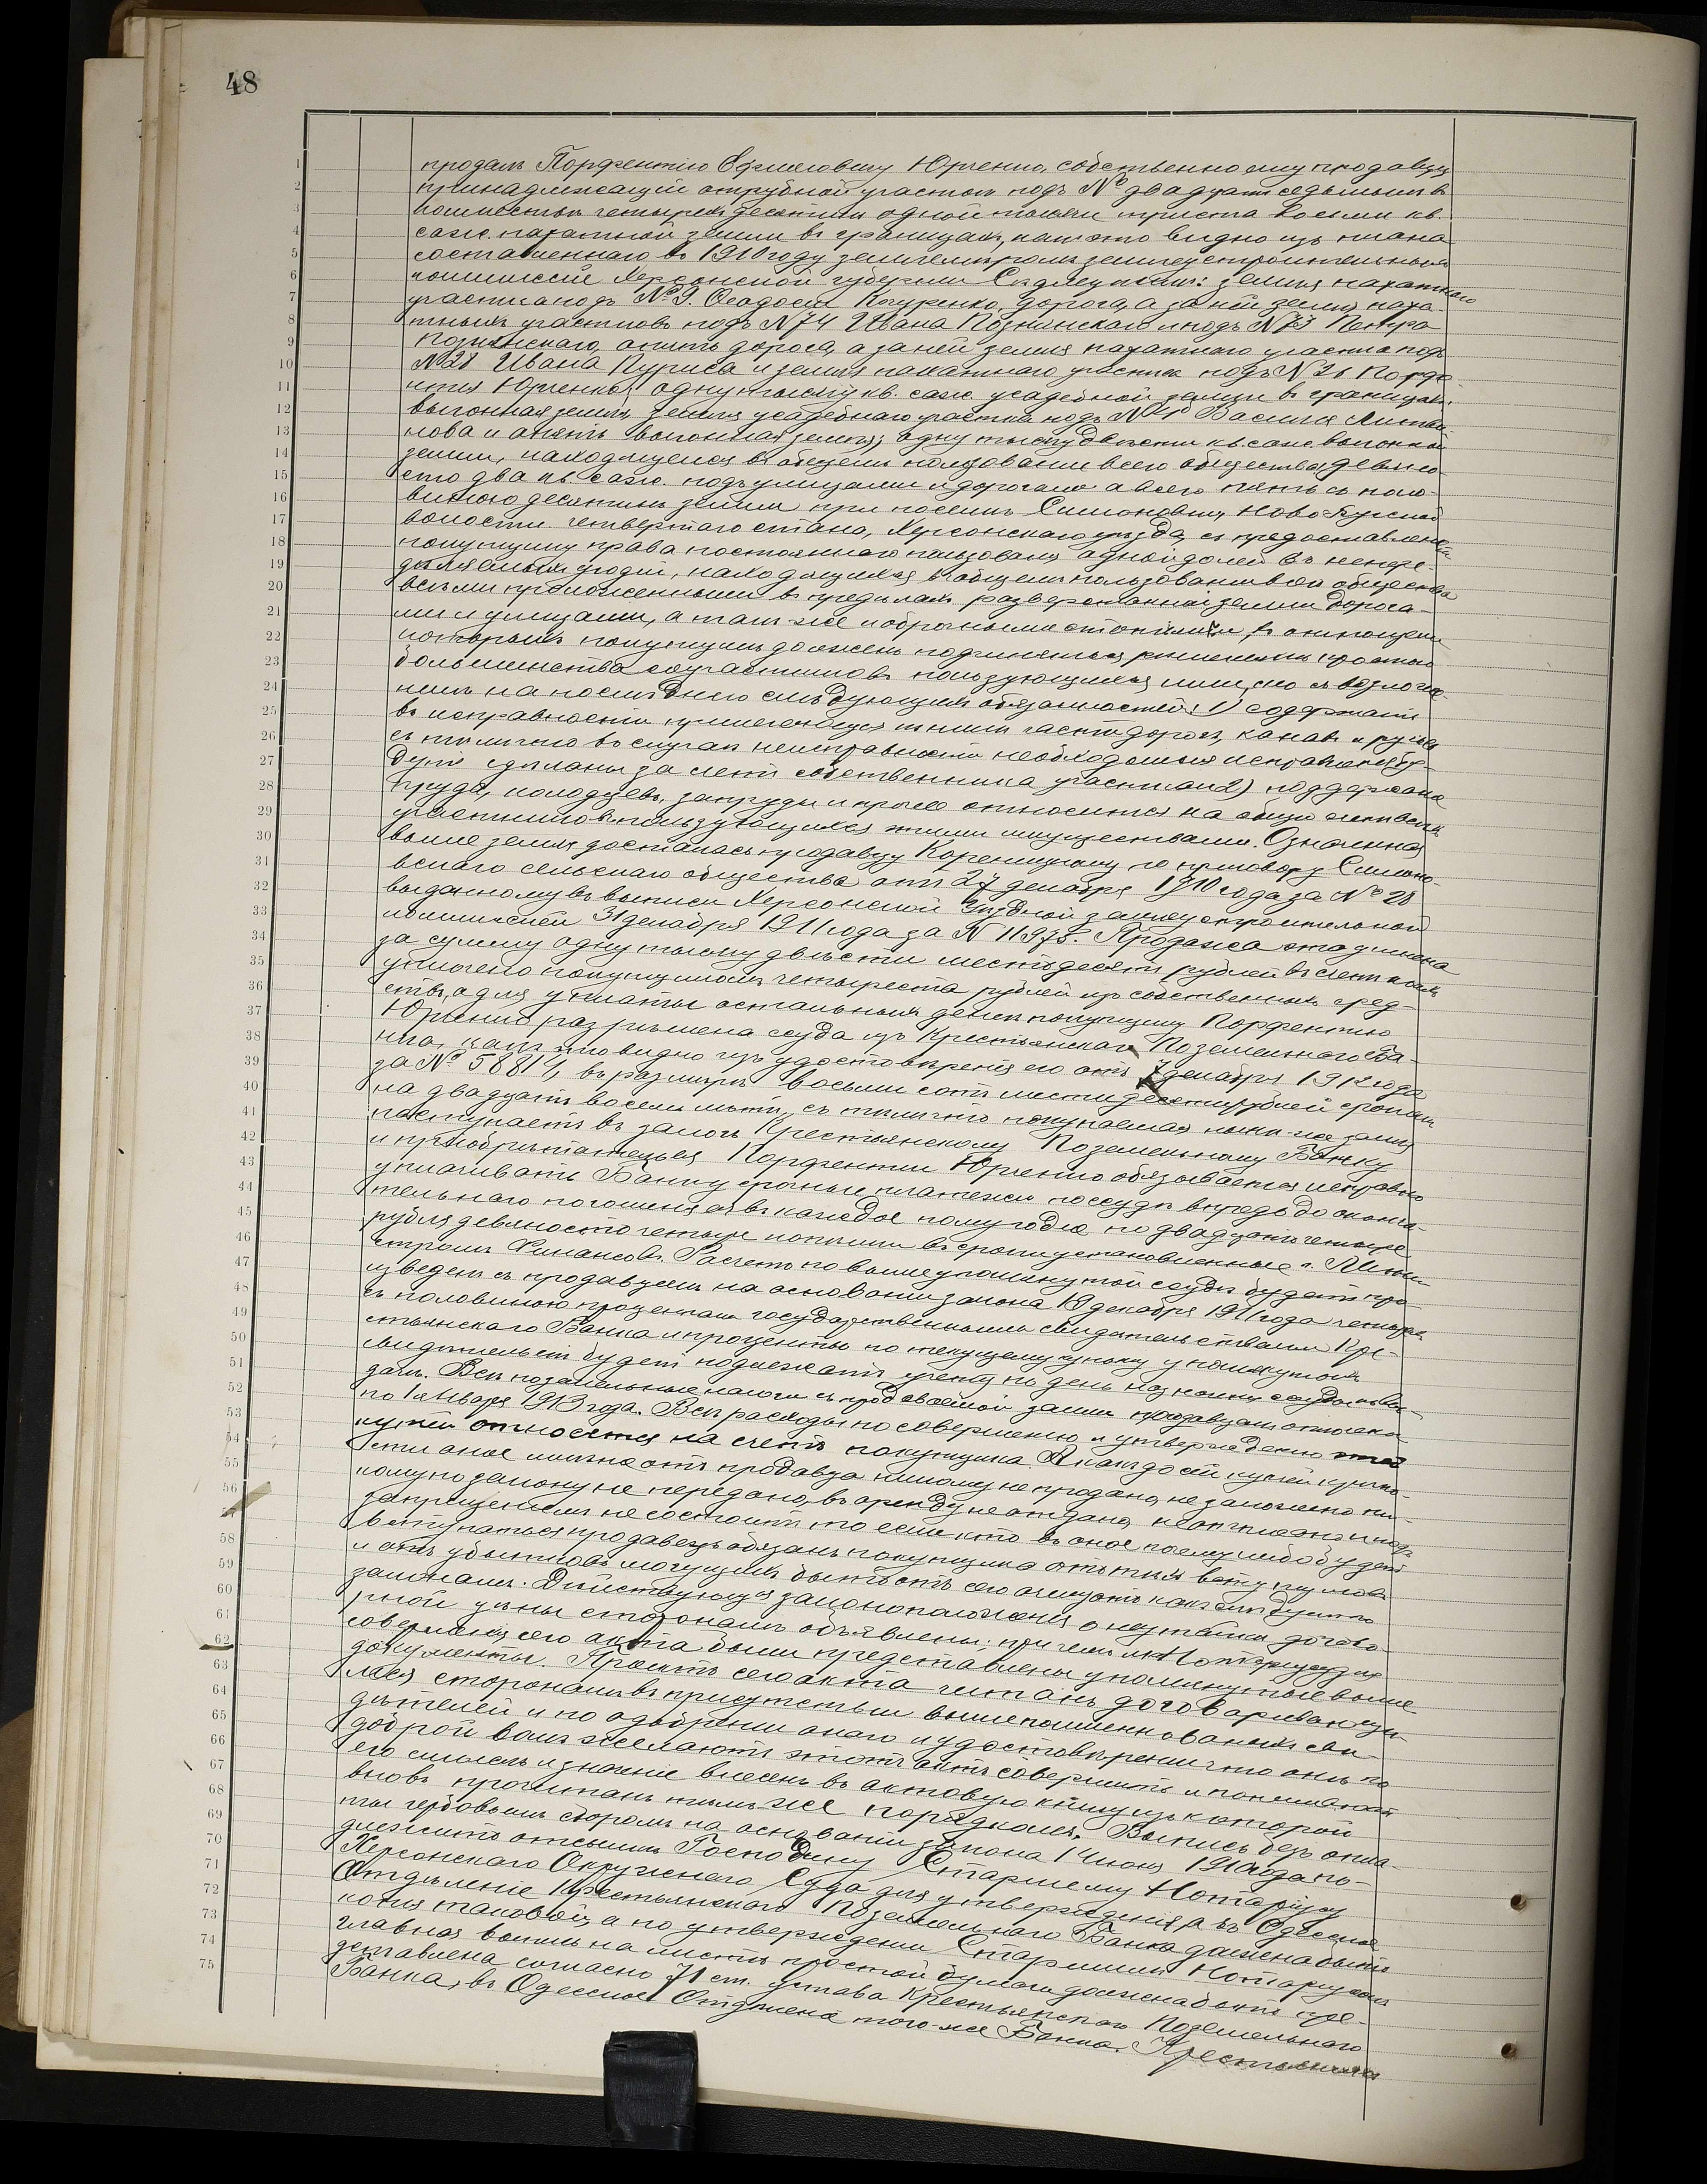 48
продалъ Порфентію Ефимовичу Юрченко, собственно ему продавцу
принадлежащій отрубной участокъ подъ № двадцать седьмымъ в
количествѣ четырехъ десятинъ одной тысячи триста восьми кв.
саж. пахатной земли въ границахъ, какъ это видно изъ плана
составленнаго въ 1910 году землемѣромъ землеустроительныхъ
коммиссій Херсонской губерніи : земля пахатнаго
участка подъ № 9. Ѳеодосія Коцуренко, дорога, а за ней земля паха-
тныхъ участковъ подъ № 74 Ивана Познанскаго и подъ № 73 Петра
Познанскаго, опять дорога, а за ней земля пахатнаго участка подъ
№ 28 Ивана и земля пахатнаго участка подъ № 26 Порфе-
нтія Юрченко; одну тысячу кв. саж. усадебной земли въ границахъ:
выгонная земля, земля усадебнаго участка подъ № Василія Литви-
нова и опять выгонная земля; одну тысячу двѣсти кв. саж. выгонной
земли, находящейся въ общемъ пользованіи всего общества, девяно-
сто два кв. саж. подъ улицами и дорогами а всего пять съ поло-
виною десятинъ земли при поселкѣ Симоновкѣ, Ново-Бугской
волости четвертаго стана, Херсонскаго уѣзда, съ предоставленіемъ
покупщику права постояннаго пользованія одной долей въ непре-
дѣляемыхъ угодій, находящихся въ общемъ пользованіи всего общества
всѣми проложенными въ предѣлахъ разверстанной земли дорога-
ми и улицами, а также въ отношеніи
которыхъ покупщикъ долженъ подчиняться рѣшеніямъ простого
большинства соучастниковъ пользующихся ими, но съ возложе-
ніемъ на послѣдняго слѣдующихъ обязанностей: 1) содержать
въ исправности прилегающія къ нимъ части дорогъ, канавъ и русла
съ тѣмъ что въ случаѣ неисправности необходимыя исправленія бу-
дутъ сдѣланы за счетъ собственника участка и 2) поддержаніе
пруда, колодцевъ, запруды и прочее относится на общій счетъ всѣхъ
участниковъ пользующихся этими имуществами. Означенная
выше земля досталась продавцу Кореницкому по приговору Симоно-
вскаго сельскаго общества отъ 27 декабря 1910 года за № 28
выданному въ выписи Херсонской Уѣздной землеустроительной
коммиссіей 31 декабря 1911 года за № 11978. Продажа эта учинена
за сумму одну тысячу двѣсти шестьдесятъ рублей въ счетъ коихъ
уплачено покупщикомъ четыреста рублей изъ собственныхъ сред-
ствъ, а для уплаты остальныхъ денегъ покупщику Порфентію
Юрченко разрѣшена ссуда изъ Крестьянскаго Поземельнаго Ба-
нка, какъ это видно изъ удостовѣренія его отъ 7 декабря 1912 года
за № 58814, въ размѣрѣ восьми сотъ шестидесяти рублей срокомъ
на двадцать восемь лѣтъ, съ тѣмъ что покупаемая нынѣ же земля
поступаетъ въ залогъ Крестьянскому Поземельному Банку
и пріобрѣтатель ея Порфентій Юрченко обязывается исправно
уплачивать Банку срочные платежи по ссудѣ впредь до оконча-
тельнаго погашенія ея въ каждое полугодіе по двадцать четыре
рубля девяносто четыре копѣйки въ сроки установленные г. Мини-
стромъ Финансовъ. Расчетъ по вышеупомянутой ссудѣ будетъ про-
изведенъ съ продавцемъ на основаніи закона 19 декабря 1911 года четырмя
съ половиною процентами государственными свидѣтельствами Кре-
стьянскаго Банка и проценты по текущему купону упомянутыхъ
свидѣтельствъ будетъ подлежать учету по день ссуды выда-
чи. Всѣ поземельные налоги съ продаваемой земли продавцемъ отнесены
по 1 января 1913 года. Всѣ расходы по совершенію и утвержденію этой
купчей относятся на счетъ покупщика. А какъ до сей купчей крѣпо-
сти оное имѣніе отъ продавца никому не продано, не заложено ни-
кому по закону не передано, въ аренду не отдано, не отписано и подъ
запрещеніемъ не состоитъ то если кто въ оное почему либо будетъ
вступаться продавецъ обязанъ покупщика отъ тѣхъ вступщиковъ
и отъ убытковъ могущихъ быть отъ сего очищать какъ слѣдуетъ по
законамъ. Дѣйствующія законоположенія о неутайкѣ догово-
рной цѣны сторонамъ объявлены: при чемъ мнѣ Нотаріусу для
совершенія сего акта были представлены упомянутые выше
документы. Проектъ сего акта читанъ договаривающи-
мся сторонамъ въ присутствіи вышепоименованныхъ сви-
дѣтелей и по одобреніи онаго и удостовѣреніи что они по
доброй волѣ желаютъ этотъ актъ совершить и понимаютъ
его смыслъ и значеніе внесенъ въ актовую книгу изъ которой
вновь прочитанъ тѣмъ-же порядкомъ. Выпись безъ опла-
ты гербовымъ сборомъ на основаніи закона 14 іюня 1910 года по-
длежитъ отсылкѣ Господину Старшему Нотаріусу
Херсонскаго Окружнаго Суда для утвержденія, а въ Одесское
Отдѣленіе Крестьянскаго Поземельнаго Банка должна быть
копія таковой, а по утвержденіи Старшимъ Нотаріусомъ
главная выпись на листѣ простой бумаги должна быть пре-
дставлена согласно 71 ст. устава Крестьянскаго Поземельнаго
Банка, въ Одесское Отдѣленіе того-же Банка. Крестьянинъ